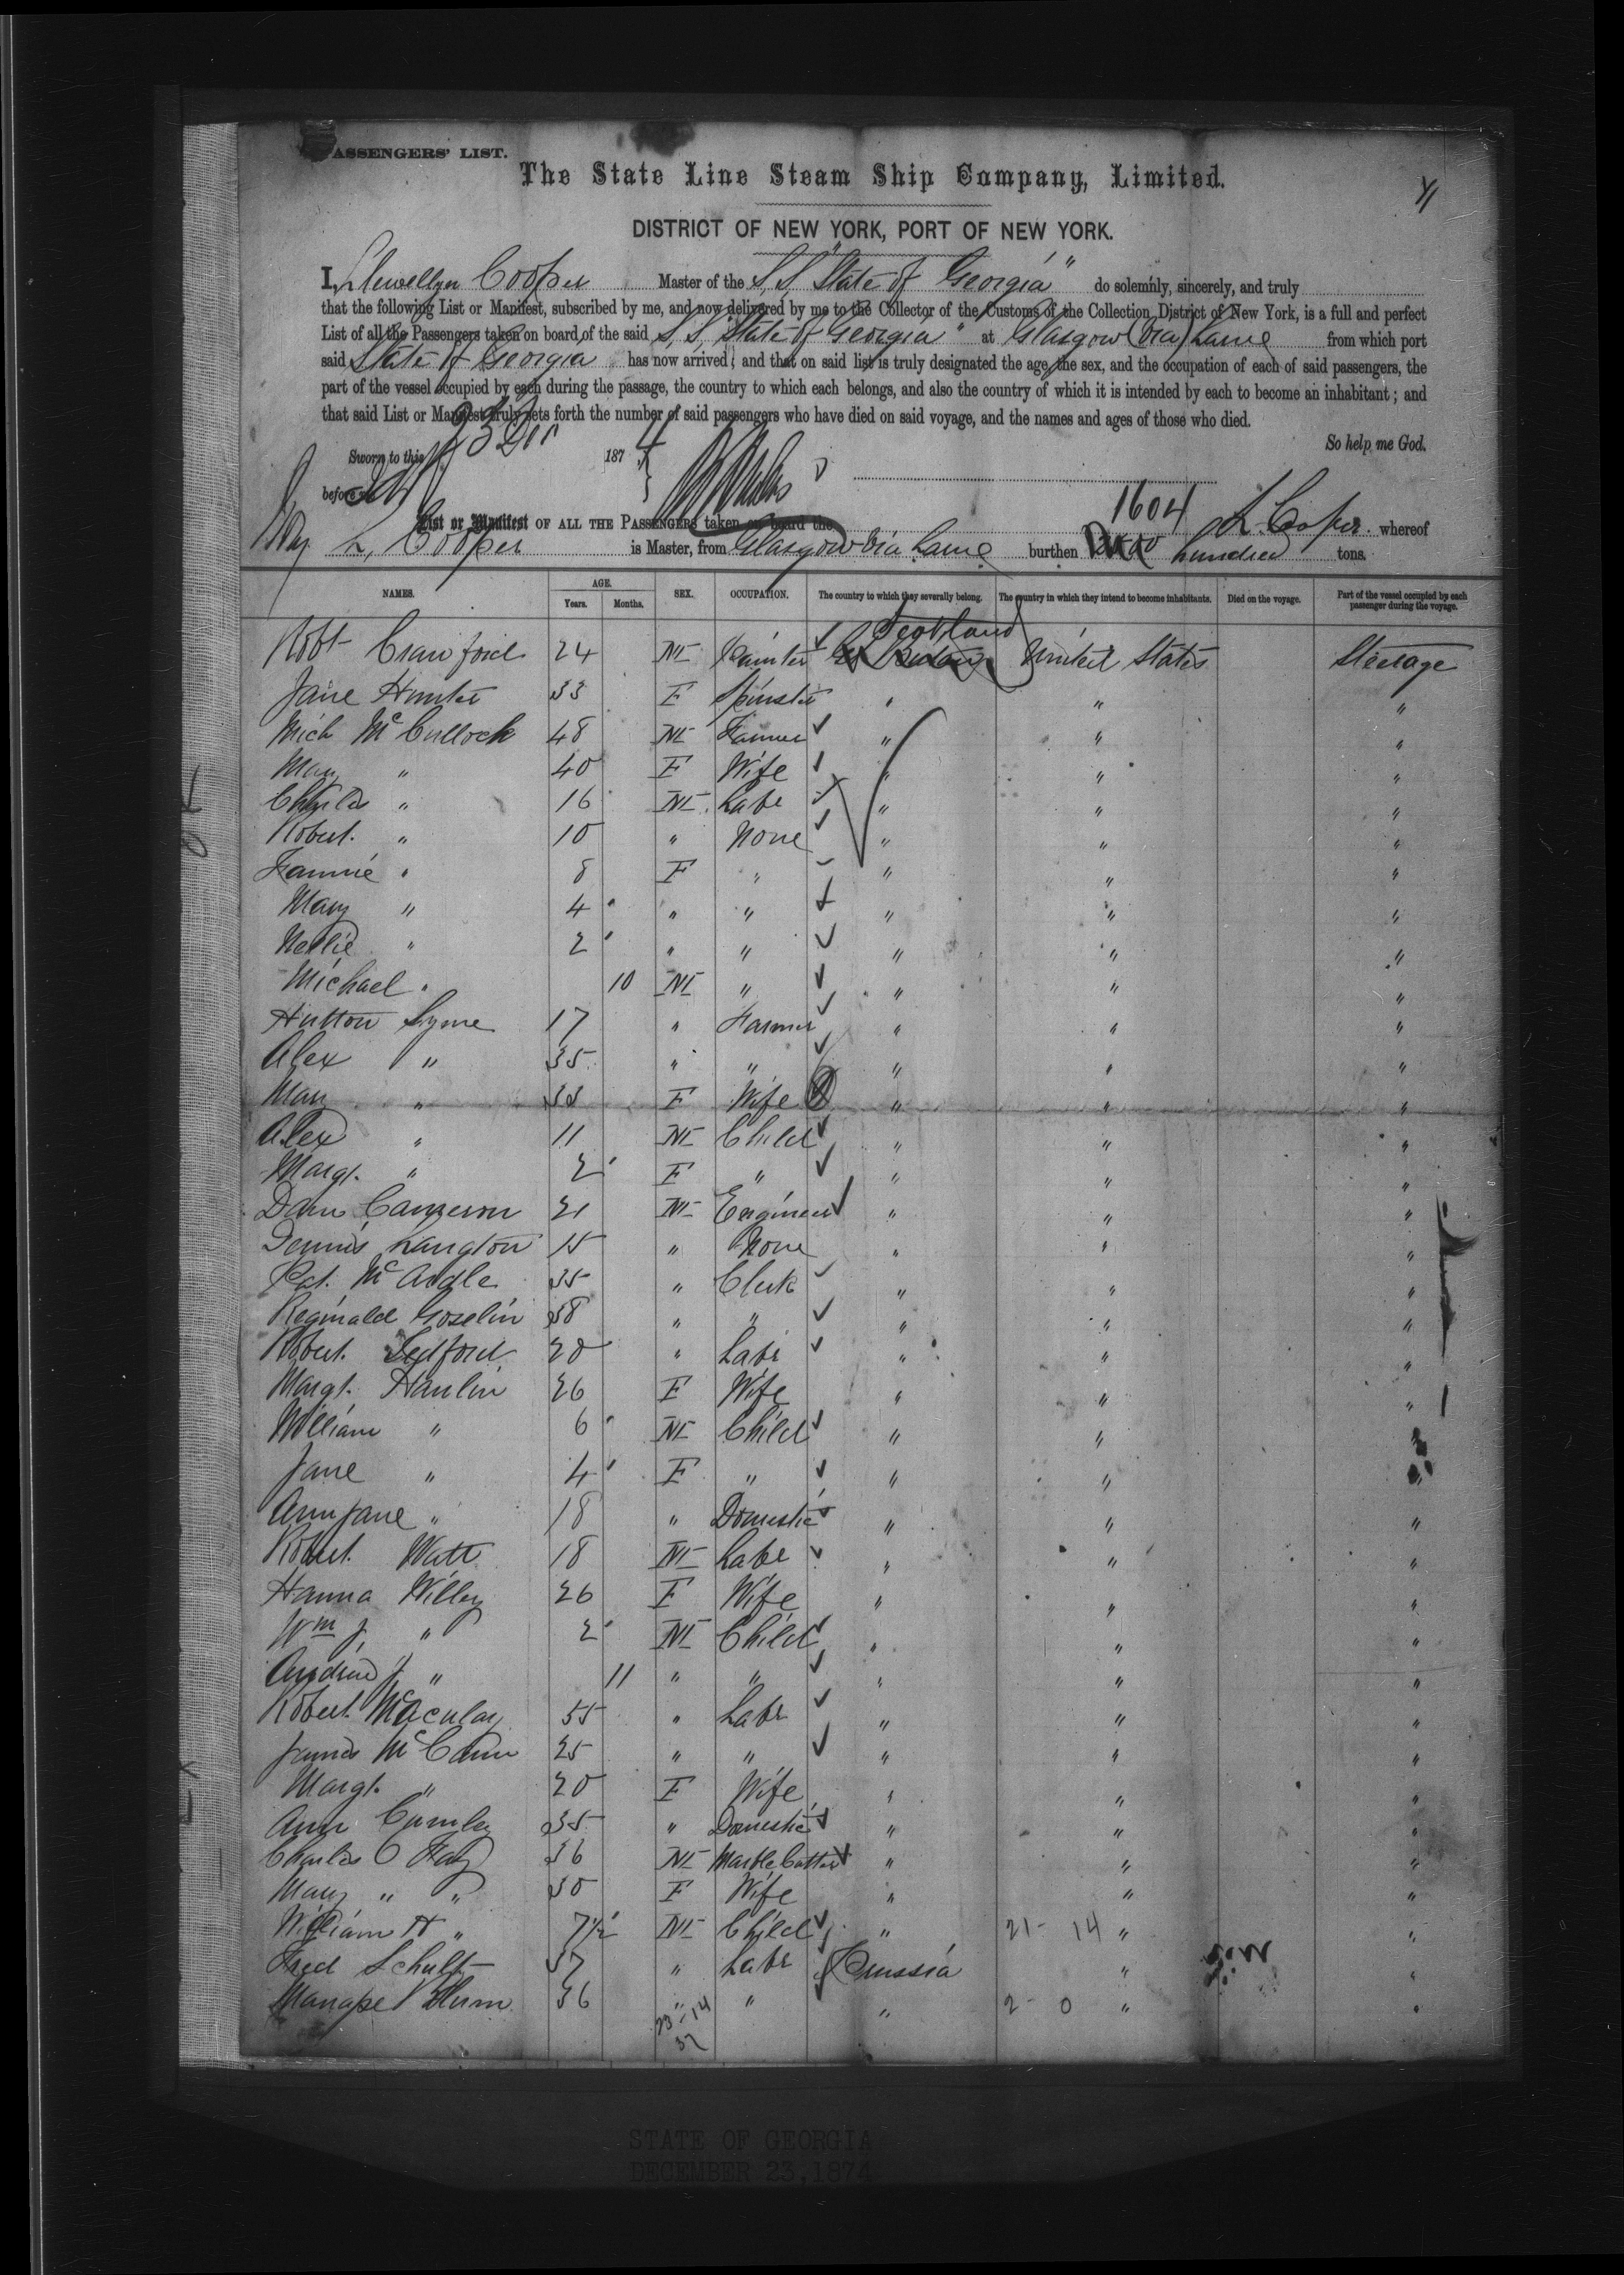 PASSENGERS' LIST.
The State Line Steam Ship Company, Limited.
DISTRICT OF NEW YORK, PORT OF NEW YORK.
I, Llewellyn Cooper Master of the S.S. "State of Georgia" do solemnly, sincerely, and truly
that the following List or Manifest, subscribed by me, and now delivered by me to the Collector of the Customs of the Collection District of New York, is a full and perfect
List of all the Passengers taken on board of the said S.S. "State of Georgia" at Glasgow (via) Larne from which port
said State of Georgia has now arrived; and that on said list is truly designated the age, the sex, and the occupation of each of said passengers, the
part of the vessel occupied by each during the passage, the country to which each belongs, and also the country of which it is intended by each to become an inhabitant; and
that said List or Manifest truly sets forth the number of said passengers who have died on said voyage, and the names and ages of those who died.
So help me God.
Sworn to this 23 Dec 1874
before
List or Manifest OF ALL THE PASSENGERS taken on board the 1604 L. Cooper whereof
L. Cooper is Master, from Glasgow via Larne burthen hundred tons.
NAMES. AGE. Years. Months. SEX. OCCUPATION. The country to which they severally belong. The country in which they intend to become inhabitants. Died on the voyage. Part of the vessel occupied by each passenger during the voyage.
Scotland
Robt Crawford 24 M Painter Gt Britain United States Steerage
Jane Hunter 33 F Spinster " " "
Mich McCullock 48 M Farmer " " "
Mary " 40 F Wife " " "
Charles " 16 M Labr " " "
Robert " 10 " None " " "
Fannie " 8 F " " " "
Mary " 4 " " " " "
Nellie " 2 " " " " "
Michael " 10 M " " " "
Hutton Syme 17 " Farmer " " "
Alex " 35 " " " " "
Mary " 33 F Wife " " "
Alex " 11 M Child " " "
Margt. " 2 F " " " "
Dan Cameron 21 M Engineer " " "
Dennis Langton 15 " None " " "
Pat. McArdle 35 " Clerk " " "
Reginald Goselin 38 " " " " "
Robert Ledford 20 " Labr " " "
Margt. Hanlin 26 F Wife " " "
William " 6 M Child " " "
Jane " 4 F " " " "
Ann Jane " 18 " Domestic " " "
Robert Watt 18 M Labr " " "
Hanna Willey 26 F Wife " " "
Wm J. " 2 M Child " " "
Andrew J. " 11 " " " " "
Robert McAculay 55 " Labr " " "
James McCann 25 " " " " "
Margt. " 20 F Wife " " "
Ann Cumley 35 " Domestic " " "
Charles O Hay 36 M Marble Cutter " " "
Mary " " 30 F Wife " " "
William H " 7½ M Child " 21 - 14 " "
Fred Schult 37 " Labr Prussia " "
Blum 36 " " " 2 - 0 " "
23 - 14
37
STATE OF GEORGIA
DECEMBER 23, 1874